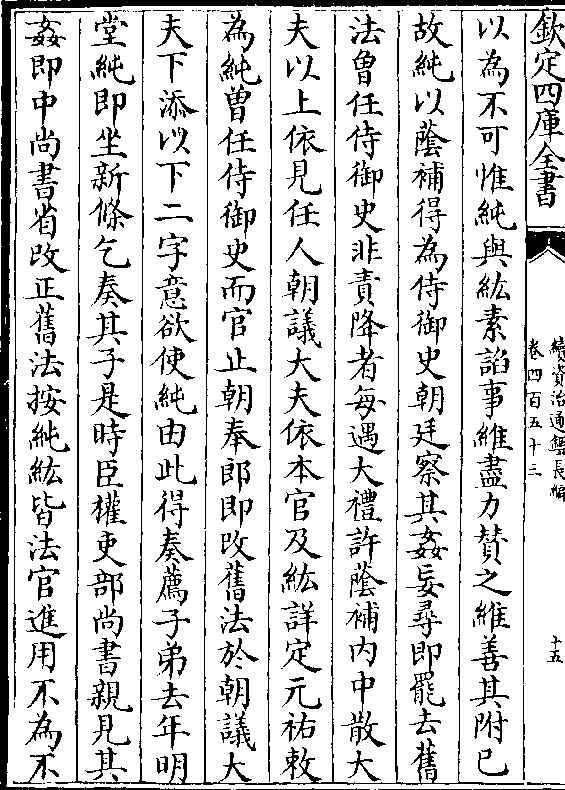 欽定四庫全書
續資治通鑑長編
卷四百五十三
十五
以為不可惟純與紘素諂事維盡力贊之維善其附已
故純以蔭補得為侍御史朝廷察其姦妄尋即罷去舊
法曾任侍御史非責降者每遇大禮許蔭補内中散大
夫以上依見任人朝議大夫依本官及紘詳定元祐敕
為純曽任侍御史而官止朝奉郎即改舊法於朝議大
夫下添以下二字意欲使純由此得奏薦子弟去年明
堂純即坐新條乞奏其子是時臣權吏部尚書親見其
姦即申尚書省改正舊法按純紘皆法官進用不為不